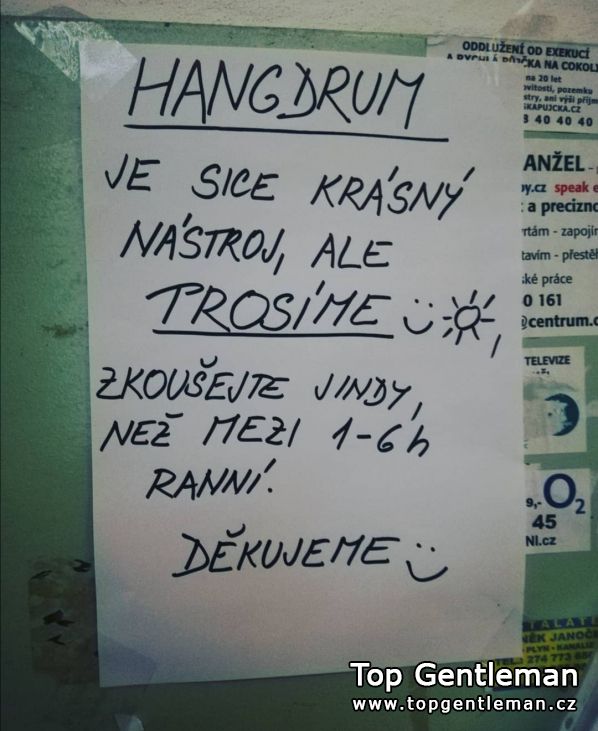 HANGDRUM
JE SICE KRÁSNÝ
NÁSTROJ, ALE
PROSÍME
ZKOUŠEJTE JINDY,
NEŽ MEZI 1-6h
RANNÍ.
DĚKUJEME
ODDLUŽENÍ OD EXEKUCÍ
A RYCHLÁ PŮJČKA NA COKOLI
na 20 let
ovitostí, pozemku
stry, ani výší příjm
SKAPUJCKA.CZ
3 40 40 40
ANŽEL
by.cz speak e
t a precizno
vrtám - zapojím
tavím - přestěh
ské práce
0 161
@centrum.c
TELEVIZE
9,- O2
45
NI.cz
TALATÉ
NĚK JANOČ
- PLYN - KANALIZ
TEL.: 274 773 68
Top Gentleman
www.topgentleman.cz